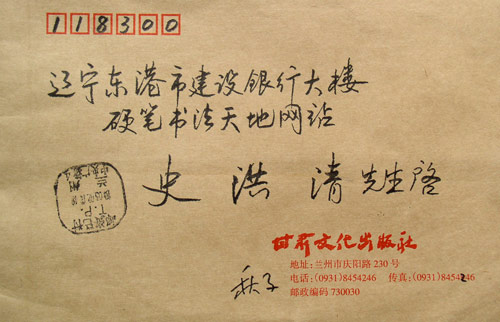 118300
辽宁东港市建设银行大楼
硬笔书法天地网站
史洪清先生启
甘肃文化出版社
地址:兰州市庆阳路230号
电话:(0931)8454246 传真:(0931)8454246
邮政编码 730030